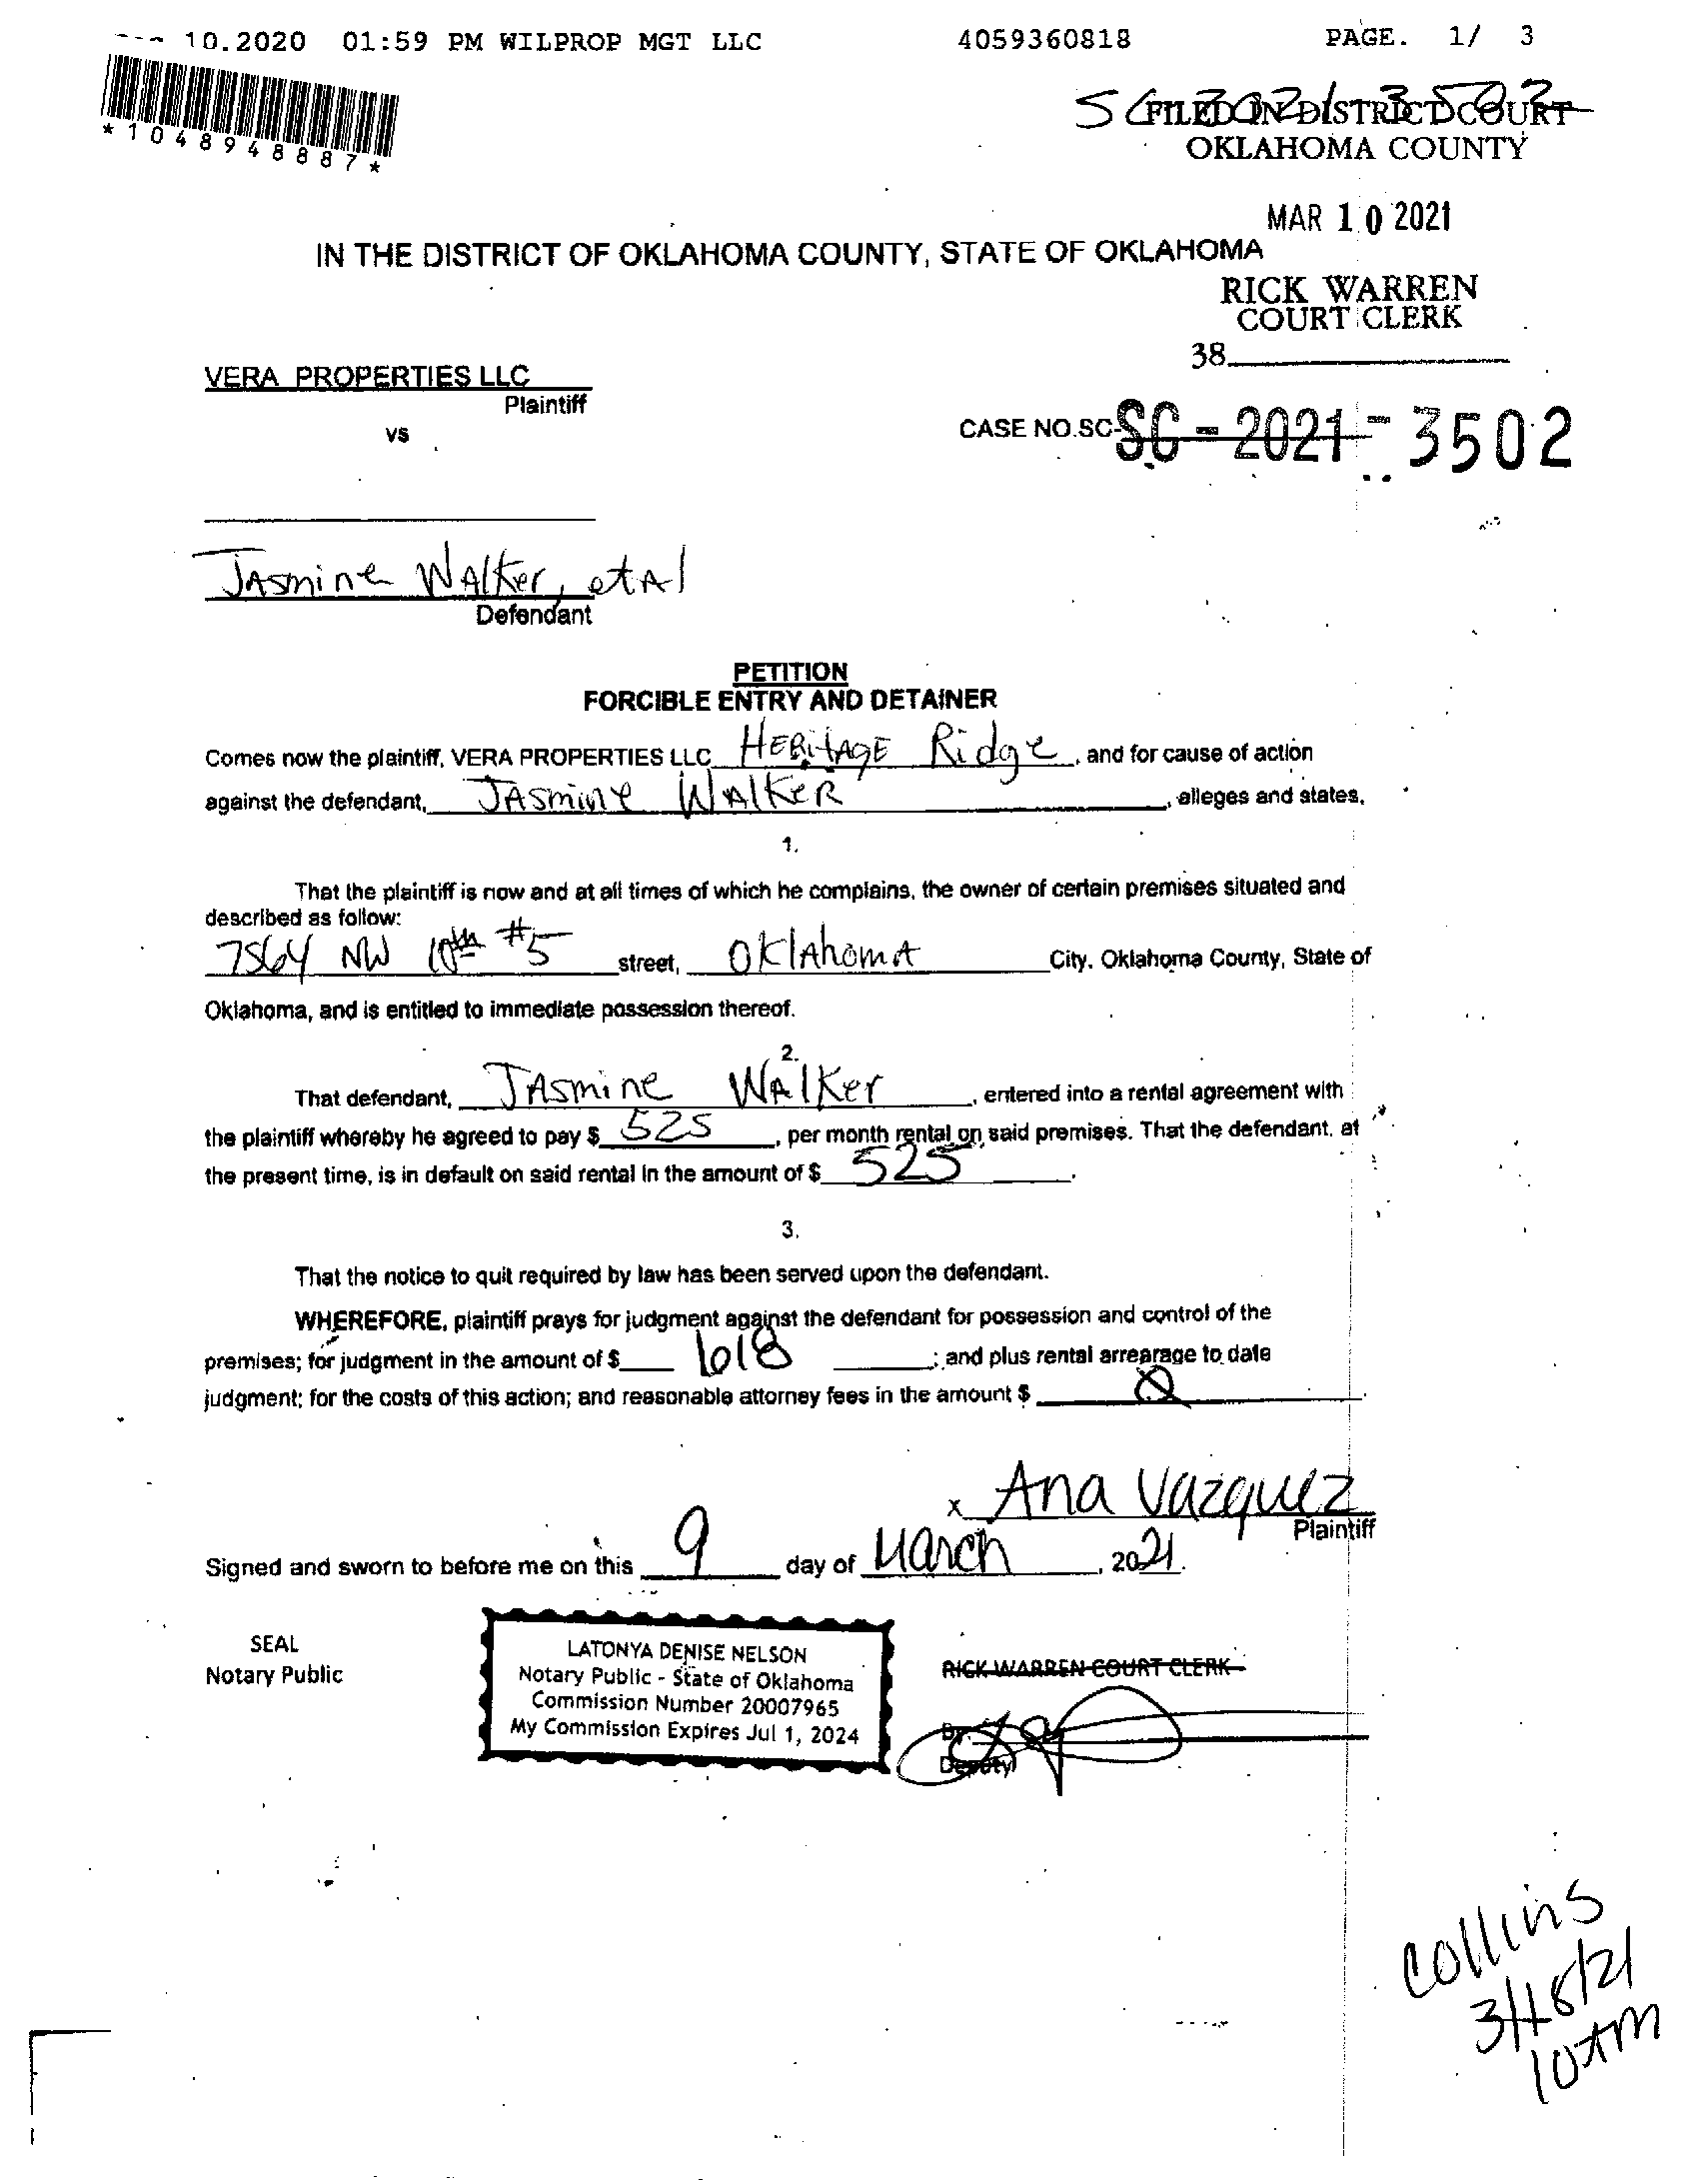 10.2020 01:59 PM WILPROP MGT LLC 4059360818 PAGE. 1/ 3
*1048948887*
SC 2021 3502
FILED IN DISTRICT COURT
OKLAHOMA COUNTY
MAR 10 2021
IN THE DISTRICT OF OKLAHOMA COUNTY, STATE OF OKLAHOMA
RICK WARREN
COURT CLERK
38
VERA PROPERTIES LLC
Plaintiff
vs
CASE NO.SC- SC - 2021 - 3502
JAsmine WAlker, et Al
Defendant
PETITION
FORCIBLE ENTRY AND DETAINER
Comes now the plaintiff, VERA PROPERTIES LLC HERitAGE Ridge, and for cause of action
against the defendant, JAsmine WAlKeR, alleges and states,
1.
That the plaintiff is now and at all times of which he complains, the owner of certain premises situated and
described as follow:
7564 NW 10th #5 street, OklAhomA City. Oklahoma County, State of
Oklahoma, and is entitled to immediate possession thereof.
2.
That defendant, JAsmine WAlKer, entered into a rental agreement with
the plaintiff whereby he agreed to pay $ 525, per month rental on said premises. That the defendant, at
the present time, is in default on said rental in the amount of $ 525.
3.
That the notice to quit required by law has been served upon the defendant.
WHEREFORE, plaintiff prays for judgment against the defendant for possession and control of the
premises; for judgment in the amount of $ 618; and plus rental arrearage to date
judgment; for the costs of this action; and reasonable attorney fees in the amount $ 0.
x Ana Vazquez
Plaintiff
Signed and sworn to before me on this 9 day of March, 2021.
SEAL
Notary Public
LATONYA DENISE NELSON
Notary Public - State of Oklahoma
Commission Number 20007965
My Commission Expires Jul 1, 2024
RICK WARREN COURT CLERK
By:
Deputy
Collins
3/18/21
10AM